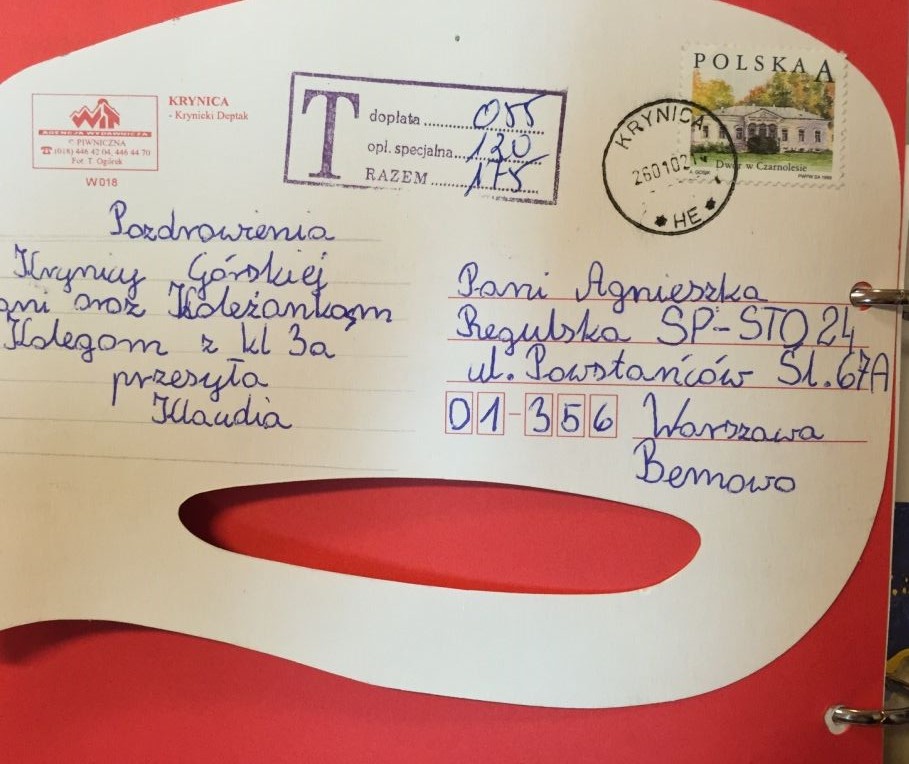 POLSKA A
Dwór w Czarnolesie
KRYNICA
260102
* HE *
T
dopłata 055
opł. specjalna 120
RAZEM 175
AGENCJA WYDAWNICZA
© PIWNICZNA
☎ (018) 446 42 04, 446 44 70
Fot. T. Ogórek
W018
KRYNICA
- Krynicki Deptak
Pozdrowienia
Krynicy Górskiej
oraz Koleżankom
Kolegom z kl 3a
przesyła
Klaudia
Pani Agnieszka
Regulska SP-STO 24
ul. Powstańców Śl. 67A
01-356 Warszawa
Bemowo